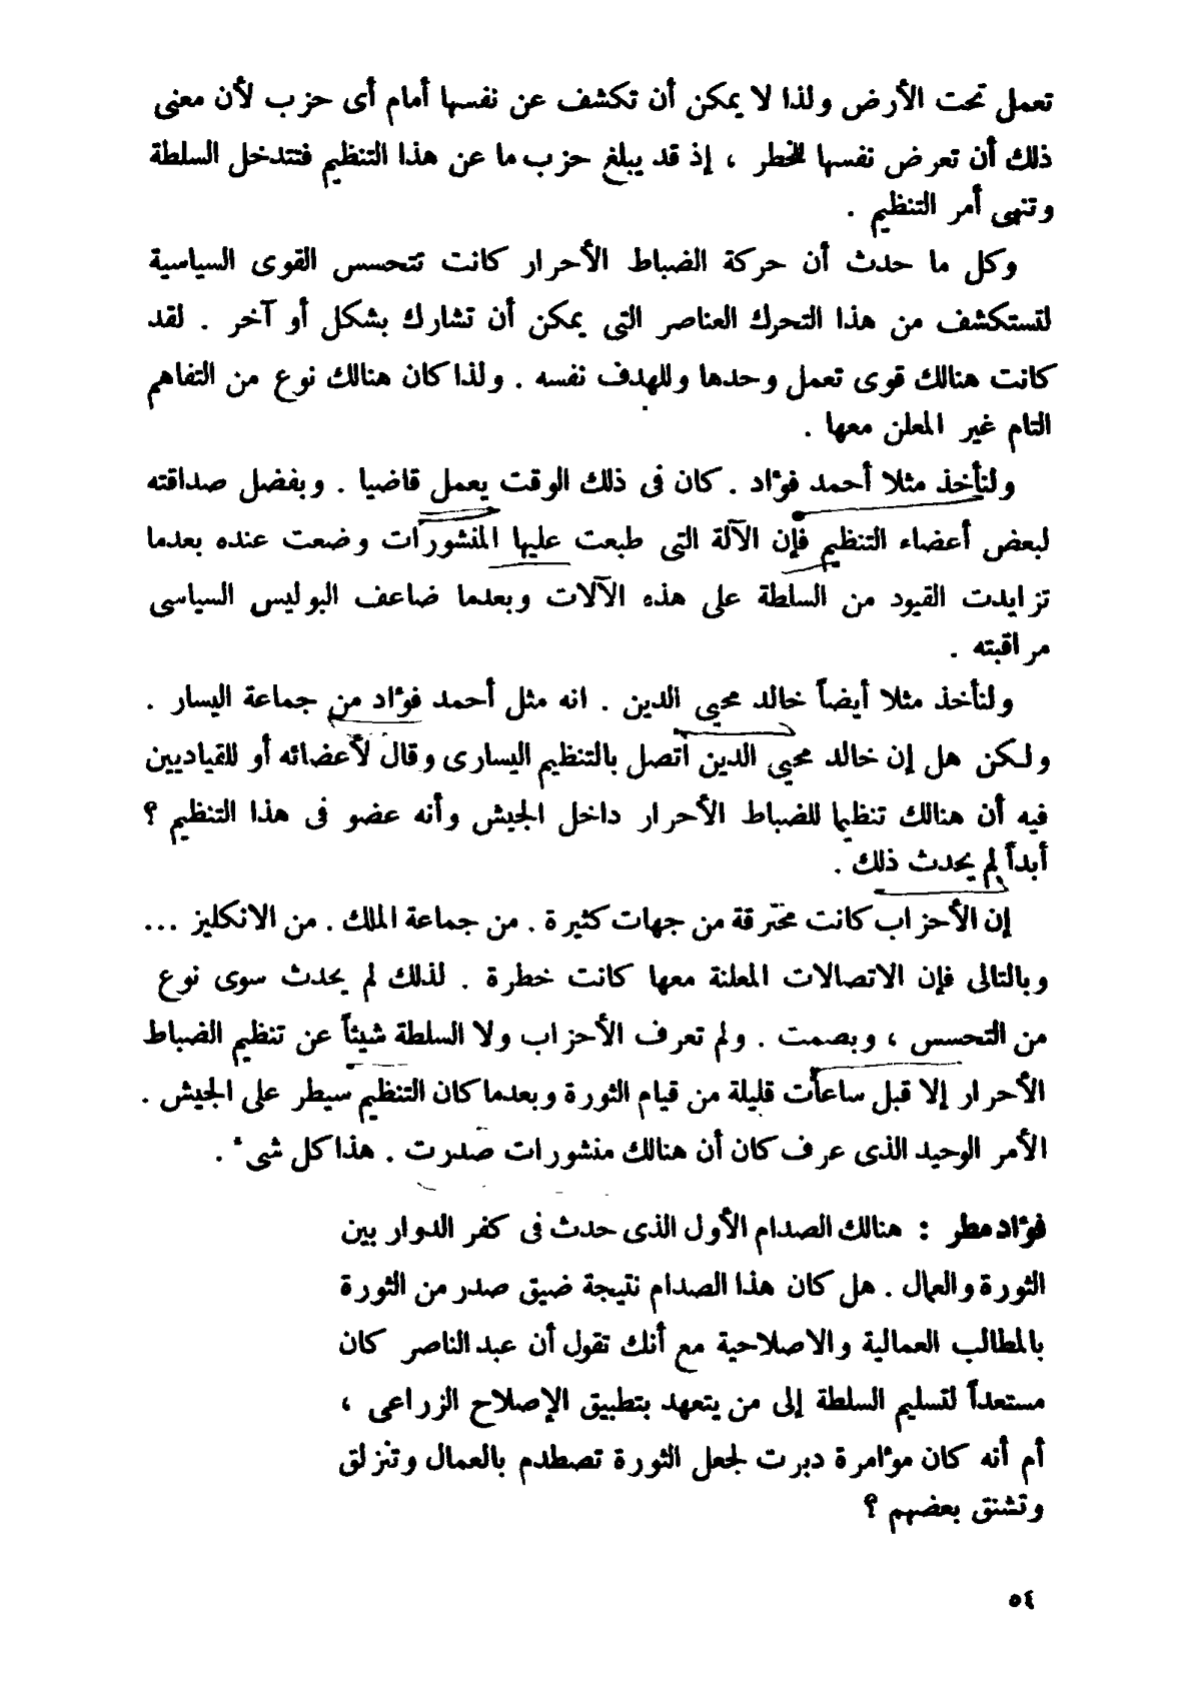 تعمل تحت الأرض ولذا لا يمكن أن تكشف عن نفسها أمام أى حزب لأن معنى
ذلك أن تعرض نفسها للخطر ، إذ قد يبلغ حزب ما عن هذا التنظيم فتتدخل السلطة
وتنهى أمر التنظيم .
وكل ما حدث أن حركة الضباط الأحرار كانت تتحسس القوى السياسية
لتستكشف من هذا التحرك العناصر التى يمكن أن تشارك بشكل أو آخر . لقد
كانت هنالك قوى تعمل وحدها وللهدف نفسه . ولذا كان هنالك نوع من التفاهم
التام غير المعلن معها .
ولنأخذ مثلا أحمد فؤاد . كان فى ذلك الوقت يعمل قاضيا . وبفضل صداقته
لبعض أعضاء التنظيم فإن الآلة التى طبعت عليها المنشورات وضعت عنده بعدما
تزايدت القيود من السلطة على هذه الآلات وبعدما ضاعف البوليس السياسى
مراقبته .
ولنأخذ مثلا أيضاً خالد محيى الدين . انه مثل أحمد فؤاد من جماعة اليسار .
ولكن هل إن خالد محيى الدين اتصل بالتنظيم اليسارى وقال لأعضائه أو للقياديين
فيه أن هنالك تنظيما للضباط الأحرار داخل الجيش وأنه عضو فى هذا التنظيم ؟
أبداً لم يحدث ذلك .
إن الأحزاب كانت مخترقة من جهات كثيرة . من جماعة الملك . من الانكليز ...
وبالتالى فإن الاتصالات المعلنة معها كانت خطرة . لذلك لم يحدث سوى نوع
من التحسس ، وبصمت . ولم تعرف الأحزاب ولا السلطة شيئاً عن تنظيم الضباط
الأحرار إلا قبل ساعات قليلة من قيام الثورة وبعدما كان التنظيم سيطر على الجيش .
الأمر الوحيد الذى عرف كان أن هنالك منشورات صدرت . هذا كل شىء .
فؤاد مطر : هنالك الصدام الأول الذى حدث فى كفر الدوار بين
الثورة والعمال . هل كان هذا الصدام نتيجة ضيق صدر من الثورة
بالمطالب العمالية والاصلاحية مع أنك تقول أن عبد الناصر كان
مستعداً لتسليم السلطة إلى من يتعهد بتطبيق الإصلاح الزراعى ،
أم أنه كان مؤامرة دبرت لجعل الثورة تصطدم بالعمال وتنزلق
وتشنق بعضهم ؟
٥٤